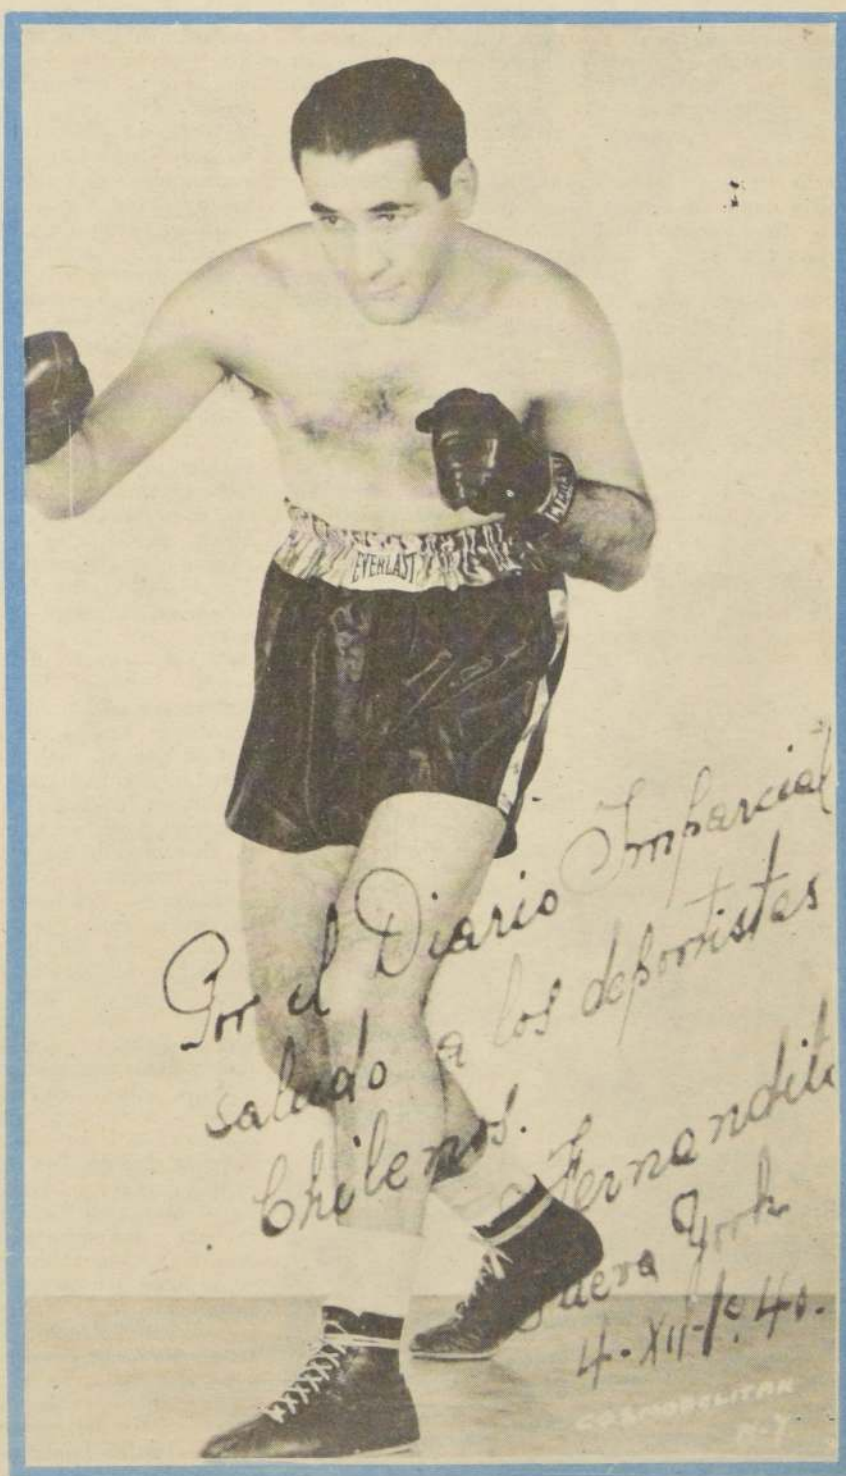 EVERLAST
Por el Diario Imparcial
saludo a los deportistas
Chilenos.
Fernandito
Nueva York
4-XII-1940.
COSMOPOLITAN
N-Y.